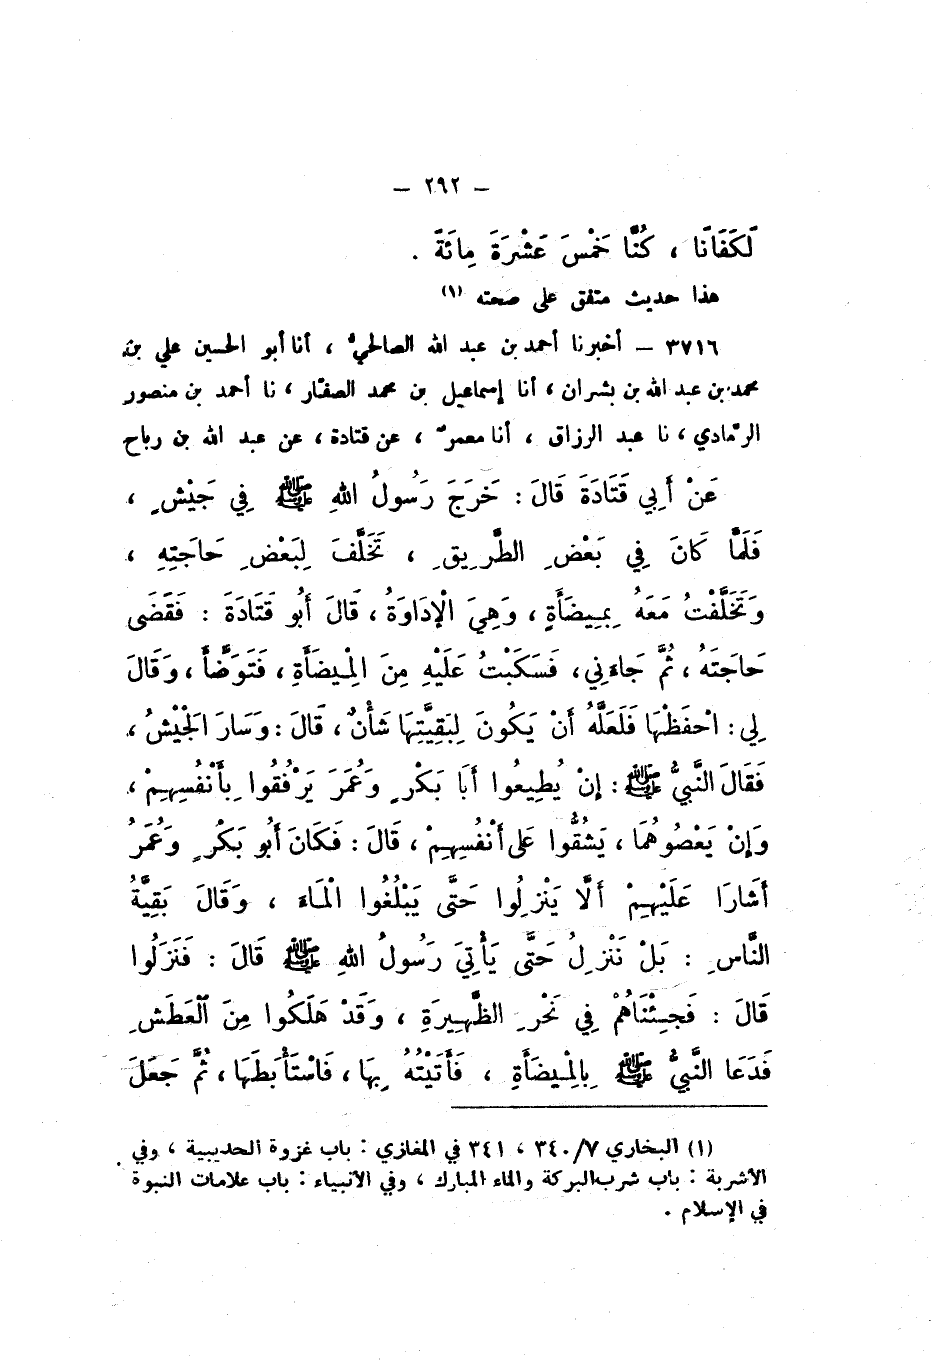 – ٢٩٢ –
لَكَفَانَا ، كُنَّا خَمْسَ عَشْرَةَ مِائَةً .
هذا حديث متفق على صحته (١)
٣٧١٦ – أخبرنا أحمد بن عبد الله الصالحيُّ ، أنا أبو الحسين علي بن
محمد بن عبد الله بن بشران ، أنا إسماعيل بن محمد الصفّار ، نا أحمد بن منصور
الرّمادي ، نا عبد الرزاق ، أنا معمرٌ ، عن قتادة ، عن عبد الله بن رباح
عَنْ أَبِي قَتَادَةَ قَالَ : خَرَجَ رَسُولُ اللهِ ﷺ فِي جَيْشٍ ،
فَلَمَّا كَانَ فِي بَعْضِ الطَّرِيقِ ، تَخَلَّفَ لِبَعْضِ حَاجَتِهِ ،
وَتَخَلَّفْتُ مَعَهُ بِمِيضَأَةٍ ، وَهِيَ الْإِدَاوَةُ ، قَالَ أَبُو قَتَادَةَ : فَقَضَى
حَاجَتَهُ ، ثُمَّ جَاءَنِي ، فَسَكَبْتُ عَلَيْهِ مِنَ الْمِيضَأَةِ ، فَتَوَضَّأَ ، وَقَالَ
لِي : احْفَظْهَا فَلَعَلَّهُ أَنْ يَكُونَ لِبَقِيَّتِهَا شَأْنٌ ، قَالَ : وَسَارَ الْجَيْشُ ،
فَقَالَ النَّبِيُّ ﷺ : إِنْ يُطِيعُوا أَبَا بَكْرٍ وَعُمَرَ يَرْفُقُوا بِأَنْفُسِهِمْ ،
وَإِنْ يَعْصُوهُمَا ، يَشُقُّوا عَلَى أَنْفُسِهِمْ ، قَالَ : فَكَانَ أَبُو بَكْرٍ وَعُمَرُ
أَشَارَا عَلَيْهِمْ أَلَّا يَنْزِلُوا حَتَّى يَبْلُغُوا الْمَاءَ ، وَقَالَ بَقِيَّةُ
النَّاسِ : بَلْ نَنْزِلُ حَتَّى يَأْتِيَ رَسُولُ اللهِ ﷺ قَالَ : فَنَزَلُوا
قَالَ : فَجِئْنَاهُمْ فِي نَحْرِ الظَّهِيرَةِ ، وَقَدْ هَلَكُوا مِنَ الْعَطَشِ
فَدَعَا النَّبِيُّ ﷺ بِالْمِيضَأَةِ ، فَأَتَيْتُهُ بِهَا ، فَاسْتَأْبَطَهَا ، ثُمَّ جَعَلَ
(١) البخاري ٣٤٠/٧ ، ٣٤١ في المغازي : باب غزوة الحديبية ، وفي
الأشربة : باب شرب البركة والماء المبارك ، وفي الأنبياء : باب علامات النبوة
في الإسلام .